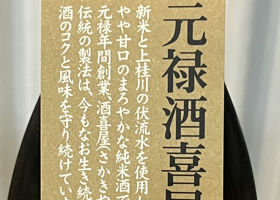 元禄酒喜屋
新米と上桂川の伏流水を使用し
やや甘口のまろやかな純米酒で
元禄年間創業、酒喜屋(さかきや
伝統の製法は、今もなお生き続
酒のコクと風味を守り続けてい